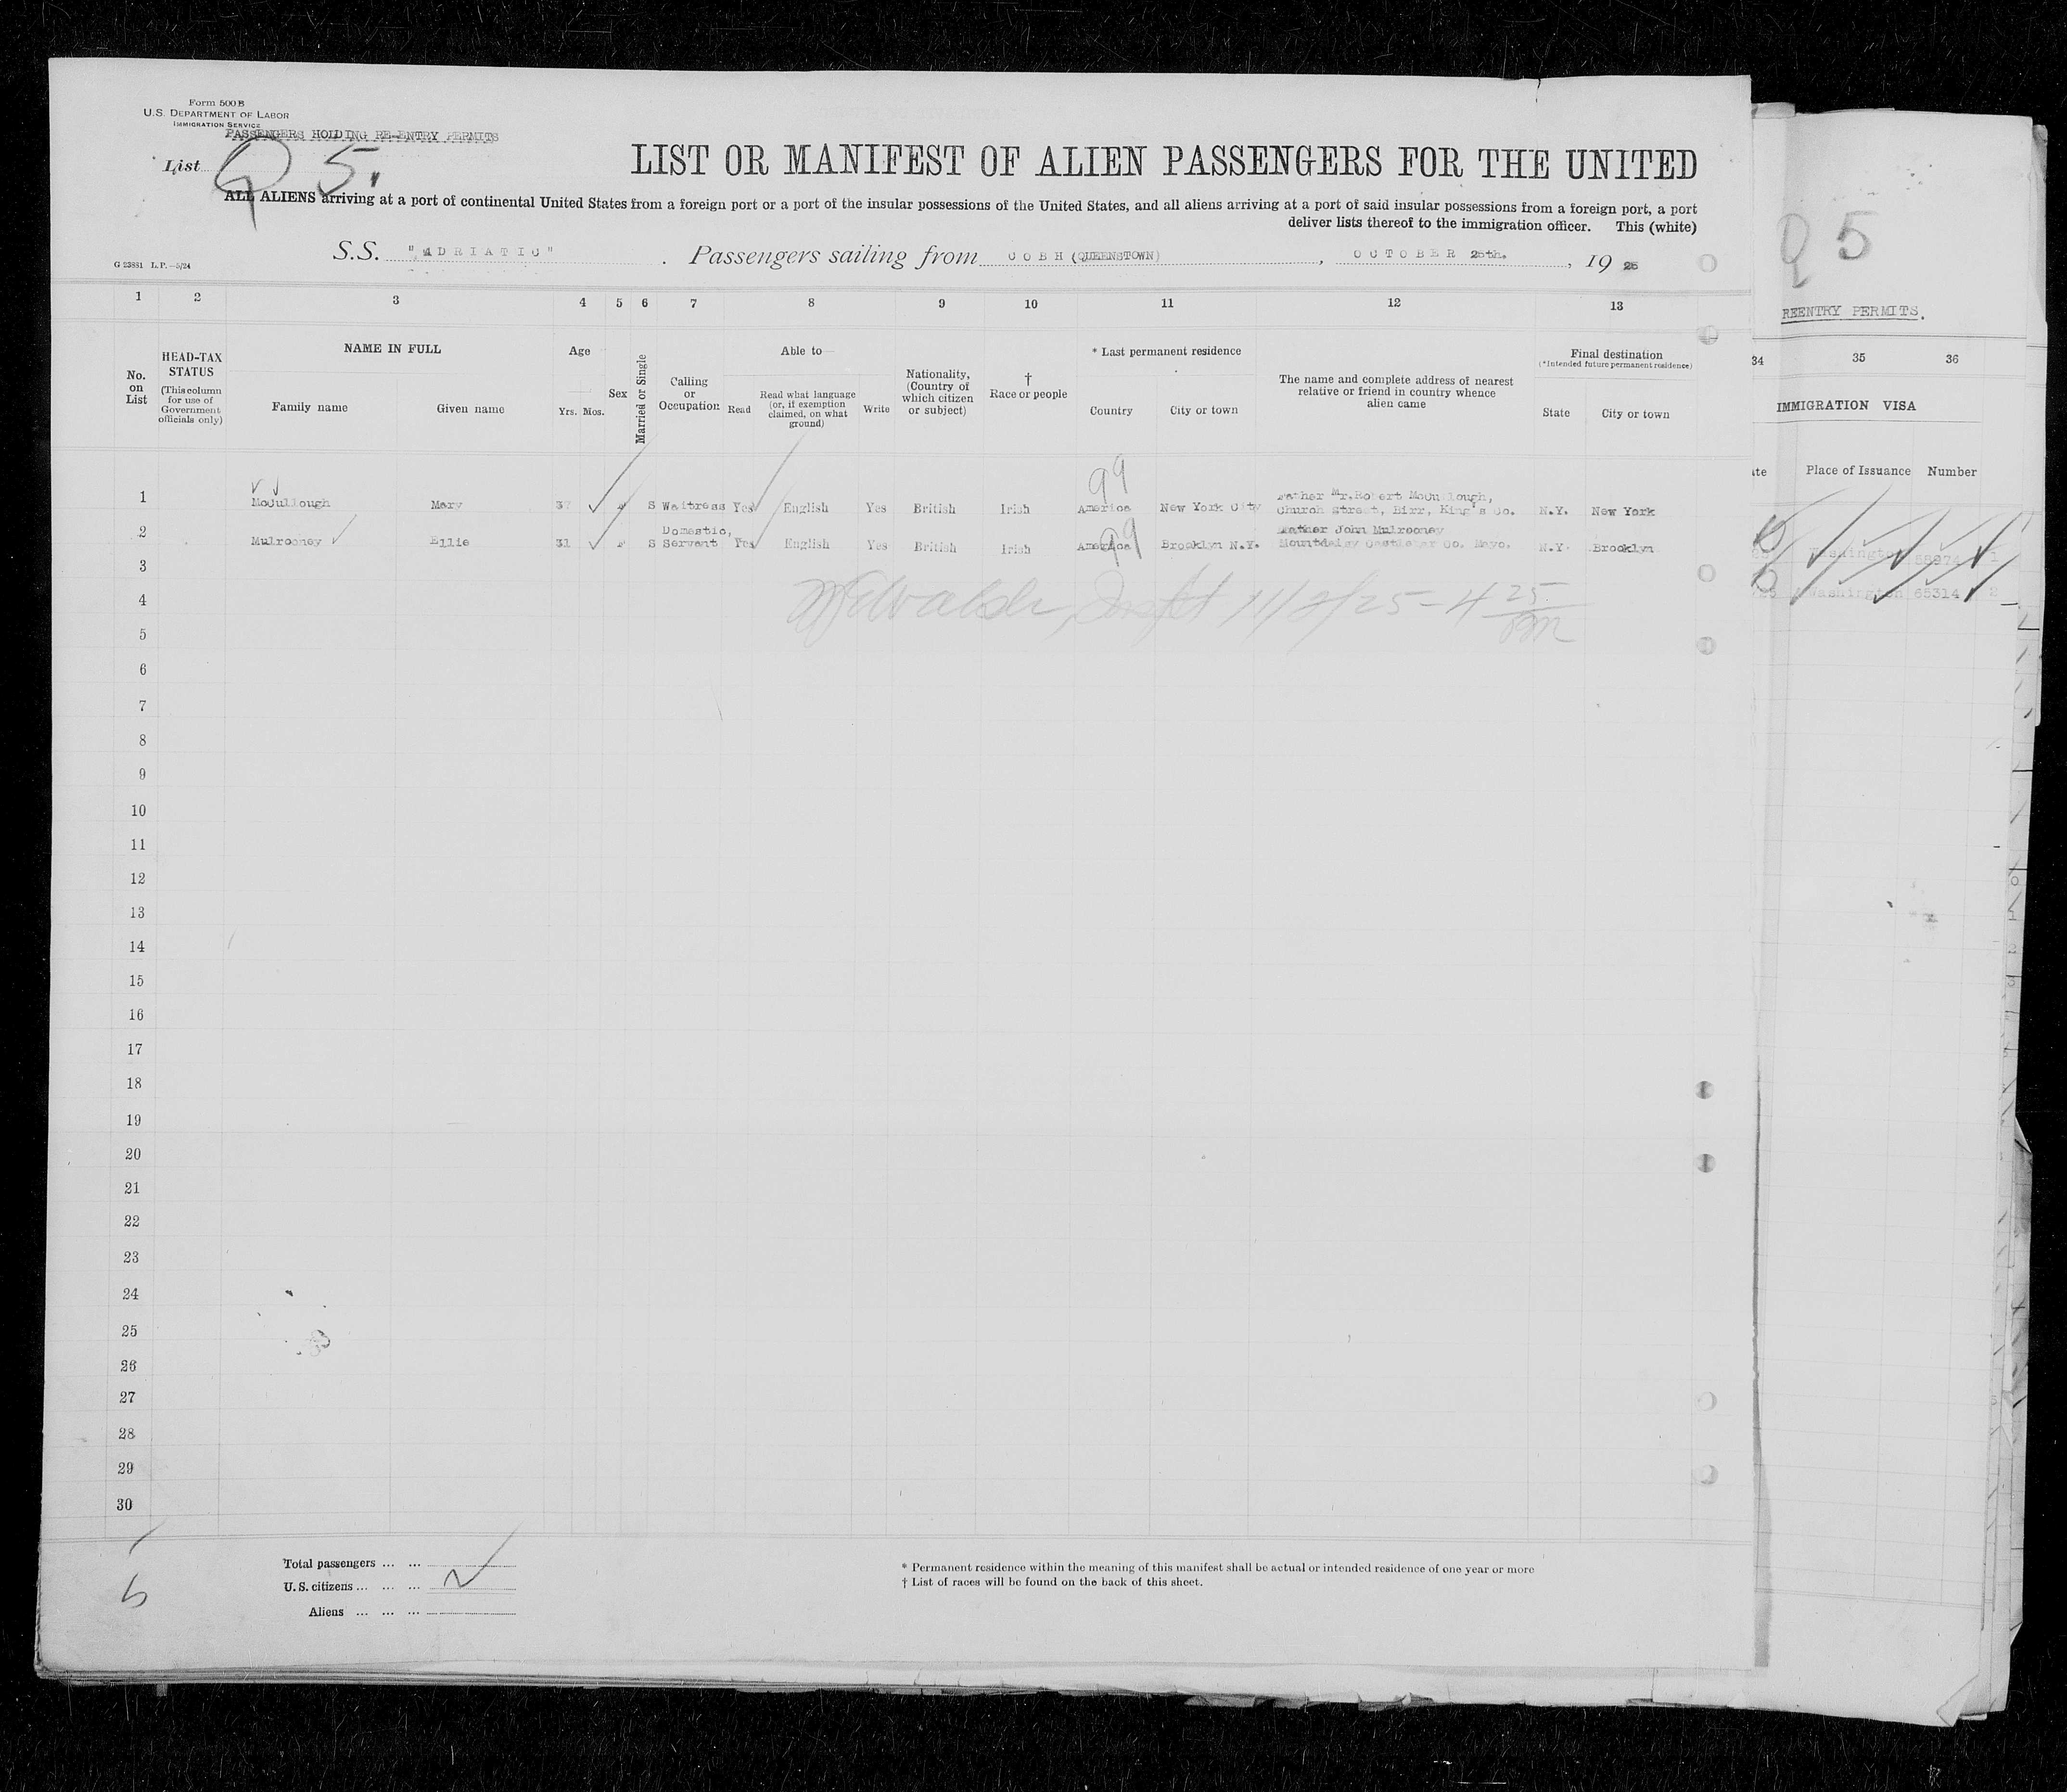 Form 500 B
U.S. DEPARTMENT OF LABOR
IMMIGRATION SERVICE
PASSENGERS HOLDING RE-ENTRY PERMITS
List Q 5.
LIST OR MANIFEST OF ALIEN PASSENGERS FOR THE UNITED
ALL ALIENS arriving at a port of continental United States from a foreign port or a port of the insular possessions of the United States, and all aliens arriving at a port of said insular possessions from a foreign port, a port
deliver lists thereof to the immigration officer. This (white)
S.S. "ADRIATIC" . Passengers sailing from COBH (QUEENSTOWN) , OCTOBER 25th. , 19 25
G 23881 L. P.—5/24
1 2 3 4 5 6 7 8 9 10 11 12 13
No. on List
HEAD-TAX STATUS
(This column for use of Government officials only)
NAME IN FULL
Family name Given name
Age
Yrs. Mos.
Sex
Married or Single
Calling or Occupation
Able to
Read Read what language (or, if exemption claimed, on what ground) Write
Nationality, (Country of which citizen or subject)
† Race or people
* Last permanent residence
Country City or town
The name and complete address of nearest relative or friend in country whence alien came
Final destination
(*Intended future permanent residence)
State City or town
99
1 McCullough Mary 37 F S Waitress Yes English Yes British Irish America New York City Father Mr. Robert McCullough, Church Street, Birr, King's Co. N.Y. New York
99
2 Mulrooney Ellie 31 F S Domestic, Servant Yes English Yes British Irish America Brooklyn N.Y. Father John Mulrooney Mountdaisy Castlebar Co. Mayo. N.Y. Brooklyn
3
4
11/2/25 - 4 25 pm
5
6
7
8
9
10
11
12
13
14
15
16
17
18
19
20
21
22
23
24
25
26
27
28
29
30
Total passengers ... ...
U. S. citizens ... ... ...
Aliens ... ... ...
* Permanent residence within the meaning of this manifest shall be actual or intended residence of one year or more
† List of races will be found on the back of this sheet.
Q 5
REENTRY PERMITS.
34 35 36
IMMIGRATION VISA
Place of Issuance Number
Washington 1
Washington 65314 2